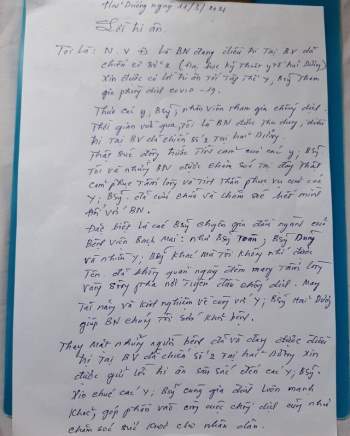 Hải Dương ngày 11/3/2021
Lời tri ân.
Tôi là: N.V.Đ là BN đang điều trị tại BV dã
chiến số 2 (Đại học kỹ thuật y tế Hải Dương)
Xin được có lời tri ân tới tập thể Y, Bsỹ tham
gia phòng dịch covid-19.
Thưa các y, Bsỹ, nhân viên tham gia chống dịch.
Thời gian vừa qua, tôi là BN được thu dung, điều
trị tại BV dã chiến số 2 tại Hải Dương.
Thật sự được hiểu trên các y, Bsỹ
Tôi và những BN được chăm sóc tại đây thật
cảm phục tấm lòng và tinh thần phục vụ của các
Y, Bsỹ đã cứu chữa và chăm sóc hết mình
đối với BN.
Đặc biệt là các Bsỹ chuyên gia đầu ngành của
Bệnh viện Bạch Mai: như Bsỹ Toàn, Bsỹ Dũng
và nhiều Y, Bsỹ khác mà tôi không nhớ được
tên đã không quản ngày đêm mang tấm lòng
vàng xông pha nơi tuyến đầu chống dịch. Mang
tài năng và kinh nghiệm về cùng với Y, Bsỹ Hải Dương
giúp BN chóng tới sức khoẻ bệnh.
Thay mặt những người bệnh đã và đang được điều
trị tại BV dã chiến số 2 tại Hải Dương xin
được gửi lời tri ân sâu sắc đến các Y, Bsỹ.
Xin chúc các Y, Bsỹ cùng gia đình luôn mạnh
khoẻ, góp phần vào công cuộc chống dịch cũng như
chăm sóc sức khoẻ cho nhân dân.